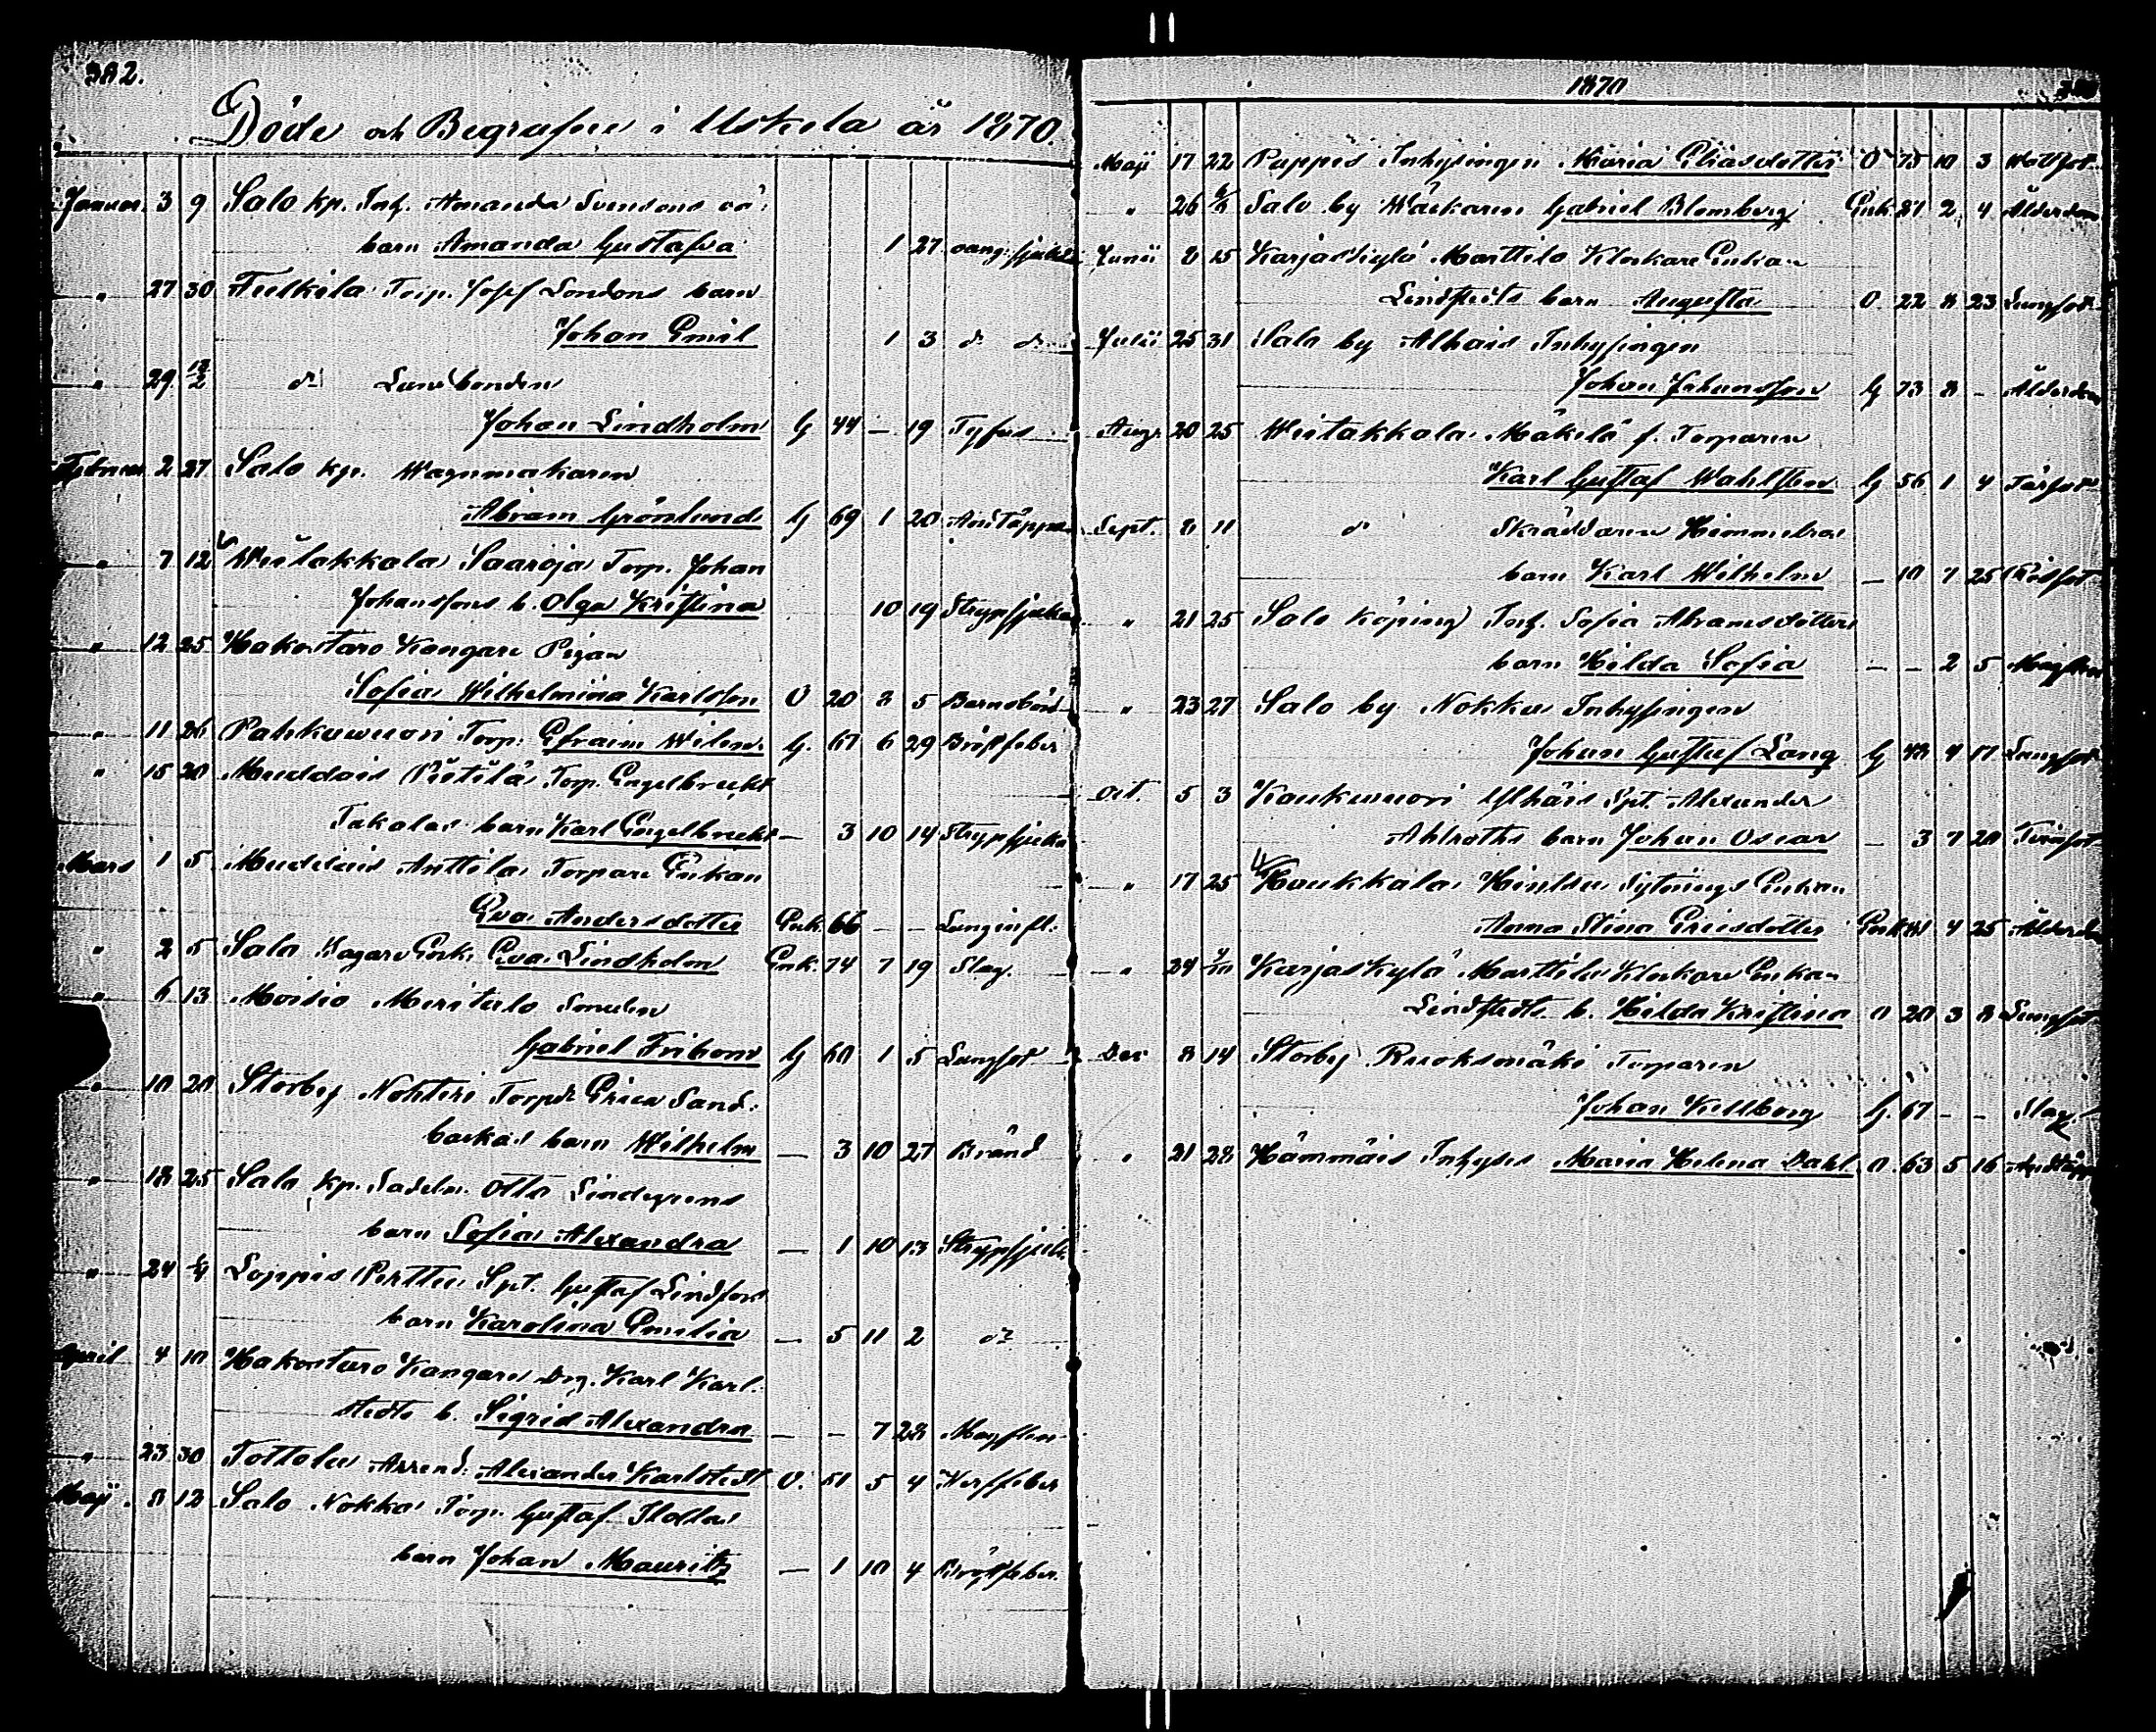 382.
Döde och Begrafne i Uskela år 1870.
Januar. 3 9 Salo kp. Inh. Amanda Svensons oä.
barn Amanda Gustafva 1 27 oang. sjukd.
" 27 30 Tulkila Torp. Josef Londons barn
Johan Emil 1 3 do do
" 29 13/2 do Landbonden
Johan Lindholm G 44 — 19 Tyfus
Februar. 2 27 Salo kp. Wagnmakaren
Abram Grönlund G 69 1 20 Andtäppa
" 7 12 Wiitakkala Saaroja Torp. Johan
Johanssons b. Olga Kristina 10 19 Strypsjuka
" 12 25 Hakostaro Kangare Pigan
Sofia Wilhelmina Karlsson O 20 8 5 Barnsbörd
" 11 26 Pahkavuori Torp. Efraim Wilen G. 67 6 29 Bröstfeber
" 15 20 Muddais Piitilä Torp. Engelbrekt
Takalas barn Karl Engelbrekt — 3 10 14 Strypsjuka
Mars 1 5 Muddais Anttila Torpare Enkan
Eva Andersdotter Enk. 66 — — Lunginfl.
" 2 5 Salo Bagare Enk. Eva Lindholm Enk. 74 7 19 Slag.
" 6 13 Moisio Meritalo Smeden
Gabriel Fribom G 60 1 5 Lungsot
" 10 20 Storby Nohteri Torpds Erica Sand-
backas barn Wilhelm — 3 10 27 Bränd
" 18 25 Salo kp. Sadelm. Otto Lindegrens
barn Sofia Alexandra — 1 10 13 Strypsjuk.
" 24 Loppis Perttu Spt. Gustaf Lindfors
barn Karolina Emilia — 5 11 2 do
April 4 10 Hakostaro Kangare Drg. Karl Karl-
stedts b. Sigrid Alexandra — — 7 28 Magplen
" 23 30 Tottola Arrend. Alexander Karlstedt O. 51 5 4 Nerffeber
Maji 8 12 Salo Nokka Torp. Gustaf
barn Johan Mauritz — 1 10 4 Bröstfeber.
1870
Maji 17 22 Pappis Inhysingen Maria Eliasdotter O 75 10 3 Wattsot
" 26 Salo by Wäckaren Gabriel Blomberg Enk. 81 2 4 Ålderdom
Junii 8 15 Karjaskylä Marttila Klockare Enkan
Lindstedts barn Augusta O. 22 8 23 Lungsot
Julii 25 31 Salo by Alhais Inhysingen
Johan Johansson G 73 8 — Ålderdom
Aug. 20 25 Wiitakkala Mäkilä f. Torparen
Karl Gustaf Wahlsten G 56 1 4 Tärsot
Sept. 8 11 do Skräddaren Himmelroos
barn Karl Wilhelm — 10 7 25 Rödsot
" 21 25 Salo köping Inh. Sofia Abramsdotters
barn Hilda Sofia — — 2 5 Magplen
" 23 27 Salo by Nokka Inhysingen
Johan Gustaf Lång G 48 4 17 Lungsot
Oct. 5 3 Kaukavuori Ylhäis Spt. Alexander
Ahlroths barn Johan Oscar — 3 7 20
" 17 25 Haukkala Sytnings Enkan
Anna Stina Ericsdotter Enk 81 4 25 Ålderdom
" 24 Karjaskylä Marttila Klockare Enkan
Lindstedts b. Hilda Kristina O 20 3 8 Lungsot
Dec 8 14 Storby Ruoksmäki Torparen
Johan Killberg G. 67 — — Slag.
" 21 28 Hämmäis Inhyses Maria Helena Dahl O 63 5 16 Andtäppa